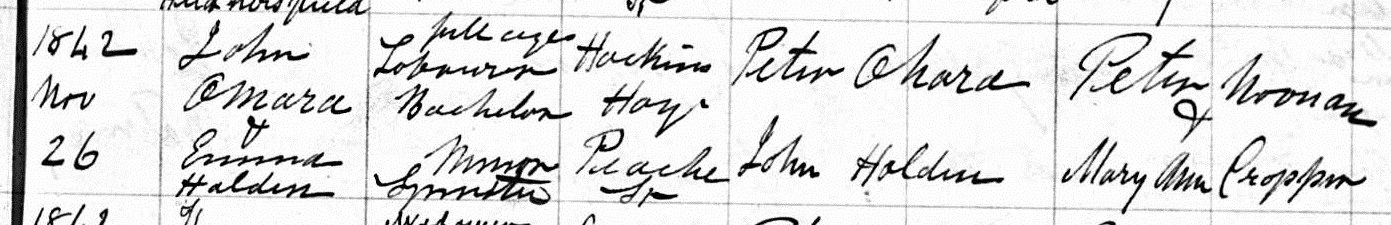 1842 John full age Hockins Peter Ohara Peter Noonan
Nov Omara Labourer Hays &
& Bachelor
26 Emma Minor Peache John Holden Mary Ann Cropper
Holden Spinster St